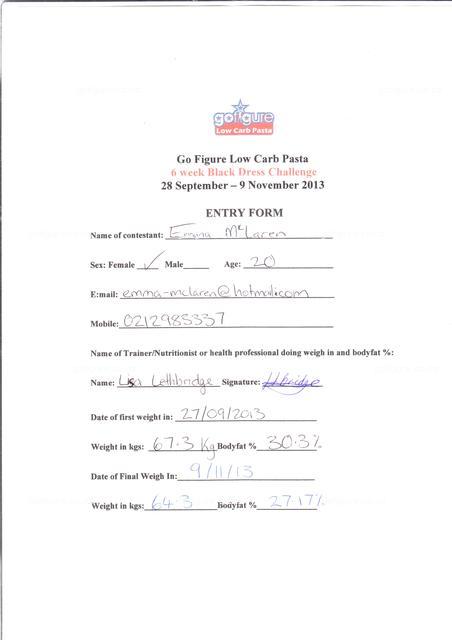 gofigure
Low Carb Pasta
Go Figure Low Carb Pasta
6 week Black Dress Challenge
28 September – 9 November 2013
ENTRY FORM
Name of contestant: Emma McLaren
Sex: Female ✓ Male____ Age: 20
E:mail: emma-mclaren@hotmail.com
Mobile: 0212985337
Name of Trainer/Nutritionist or health professional doing weigh in and bodyfat %:
Name: Lisa Lethbridge Signature:
Date of first weight in: 27/09/2013
Weight in kgs: 67.3 Kg Bodyfat % 30.3%
Date of Final Weigh In: 9/11/13
Weight in kgs: 64.3 Bodyfat % 27.17%